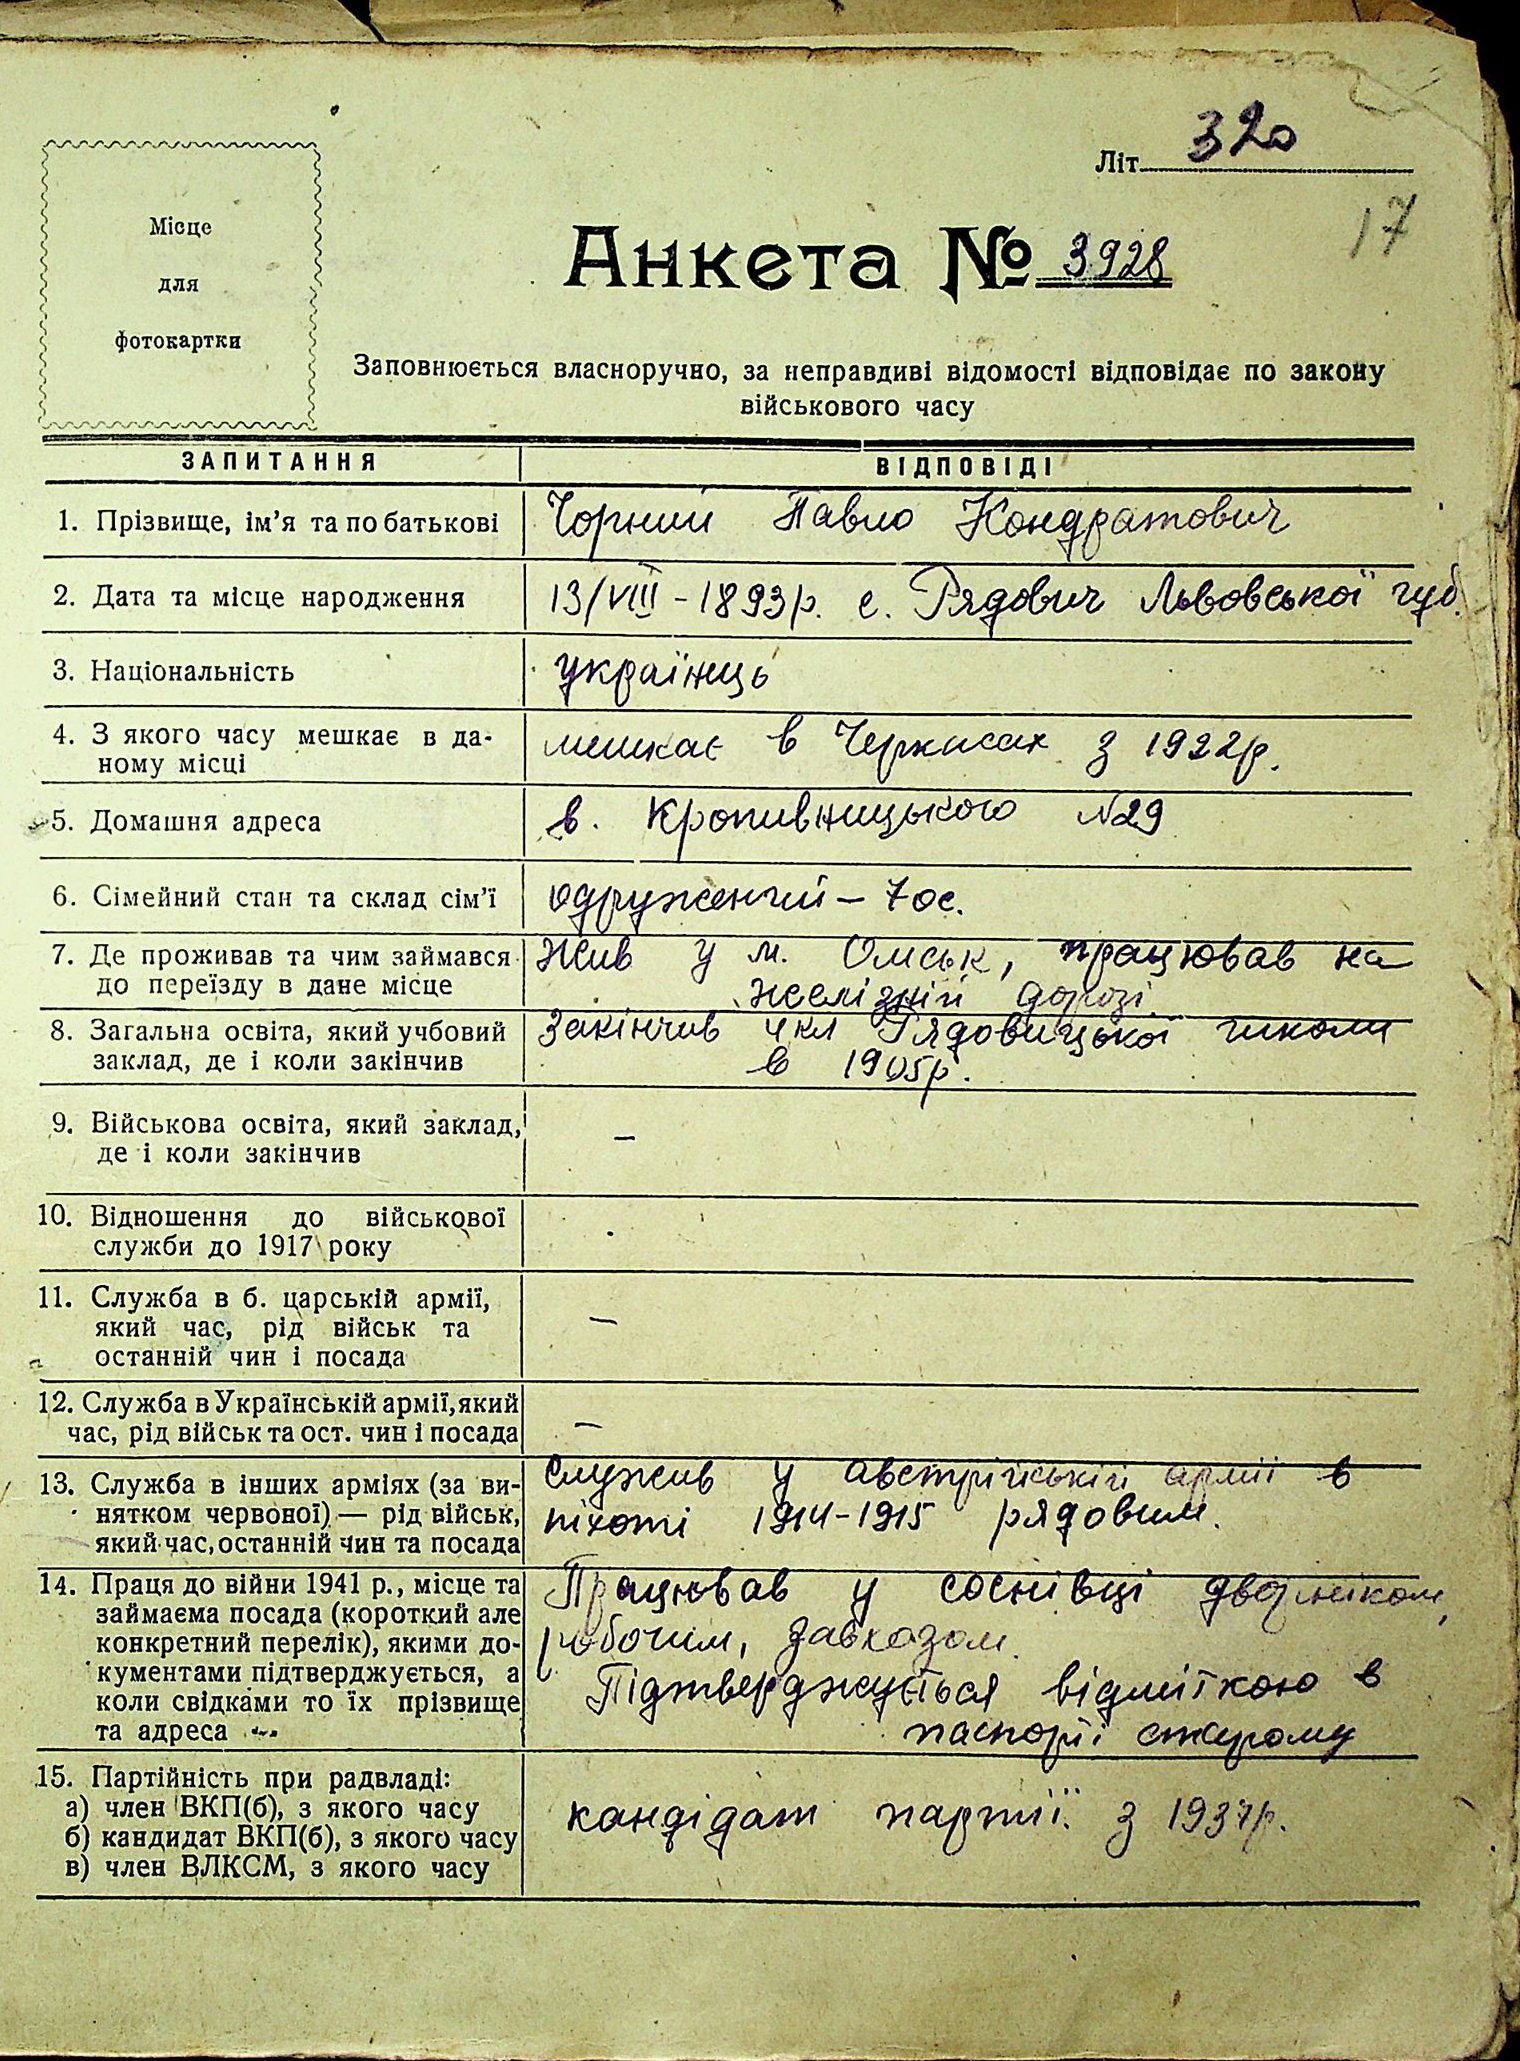 Літ. 320
17
Місце
для
фотокартки
Анкета № 3928
Заповнюється власноручно, за неправдиві відомості відповідає по закону
військового часу
ЗАПИТАННЯ ВІДПОВІДІ
1. Прізвище, ім'я та по батькові Чорний Павло Кондратович
2. Дата та місце народження 13/VIII - 1893 р. с. Рядович Львовської губ.
3. Національність українець
4. З якого часу мешкає в да- мешкає в Черкасах з 1922 р.
ному місці
5. Домашня адреса в. Кропивницького №29
6. Сімейний стан та склад сім'ї одружений – 7 ос.
7. Де проживав та чим займався Жив у м. Омськ, працював на
до переїзду в дане місце желізній дорозі
8. Загальна освіта, який учбовий Закінчив 4 кл Рядовицької школи
заклад, де і коли закінчив в 1905 р.
9. Військова освіта, який заклад, –
де і коли закінчив
10. Відношення до військової
служби до 1917 року
11. Служба в б. царській армії, –
який час, рід військ та
останній чин і посада
12. Служба в Українській армії, який –
час, рід військ та ост. чин і посада
13. Служба в інших арміях (за ви- служив у австрійській армії в
нятком червоної) — рід військ, піхоті 1914-1915 рядовим.
який час, останній чин та посада
14. Праця до війни 1941 р., місце та Працював у соснівці дворніком,
займаєма посада (короткий але робочим, завхозом.
конкретний перелік), якими до- Підтверджується відміткою в
кументами підтверджується, а паспорті старому
коли свідками то їх прізвище
та адреса
15. Партійність при радвладі:
а) член ВКП(б), з якого часу кандідат партії з 1937 р.
б) кандидат ВКП(б), з якого часу
в) член ВЛКСМ, з якого часу